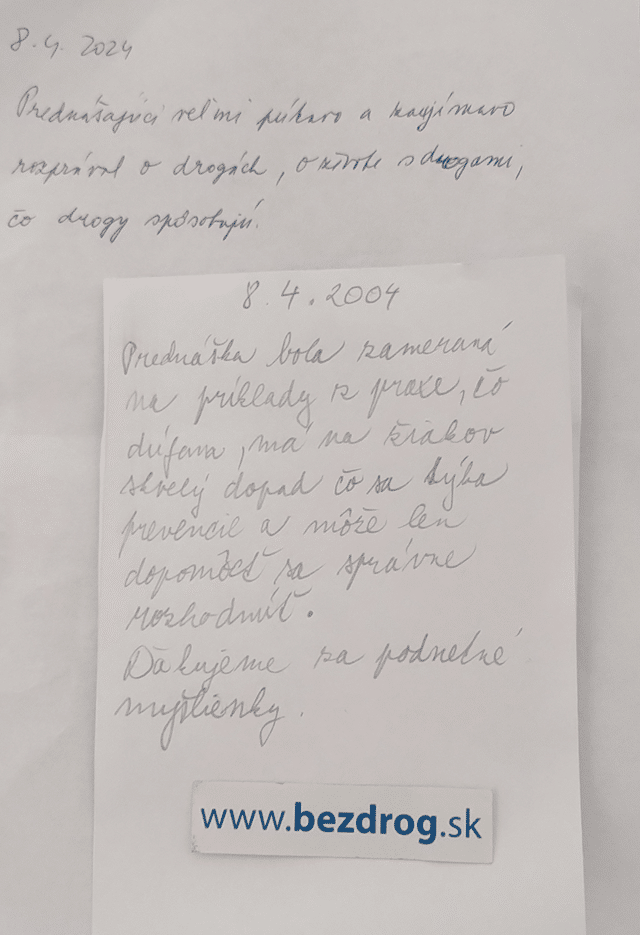 8.4.2024
Prednášajúci veľmi pútavo a zaujímavo
rozprával o drogách, o živote s drogami,
čo drogy spôsobujú.
8.4.2004
Prednáška bola zameraná
na príklady z praxe, čo
dúfam, má na žiakov
skvelý dopad čo sa týka
prevencie a môže len
dopomôcť sa správne
rozhodnúť.
Ďakujeme za podnetné
myšlienky.
www.bezdrog.sk